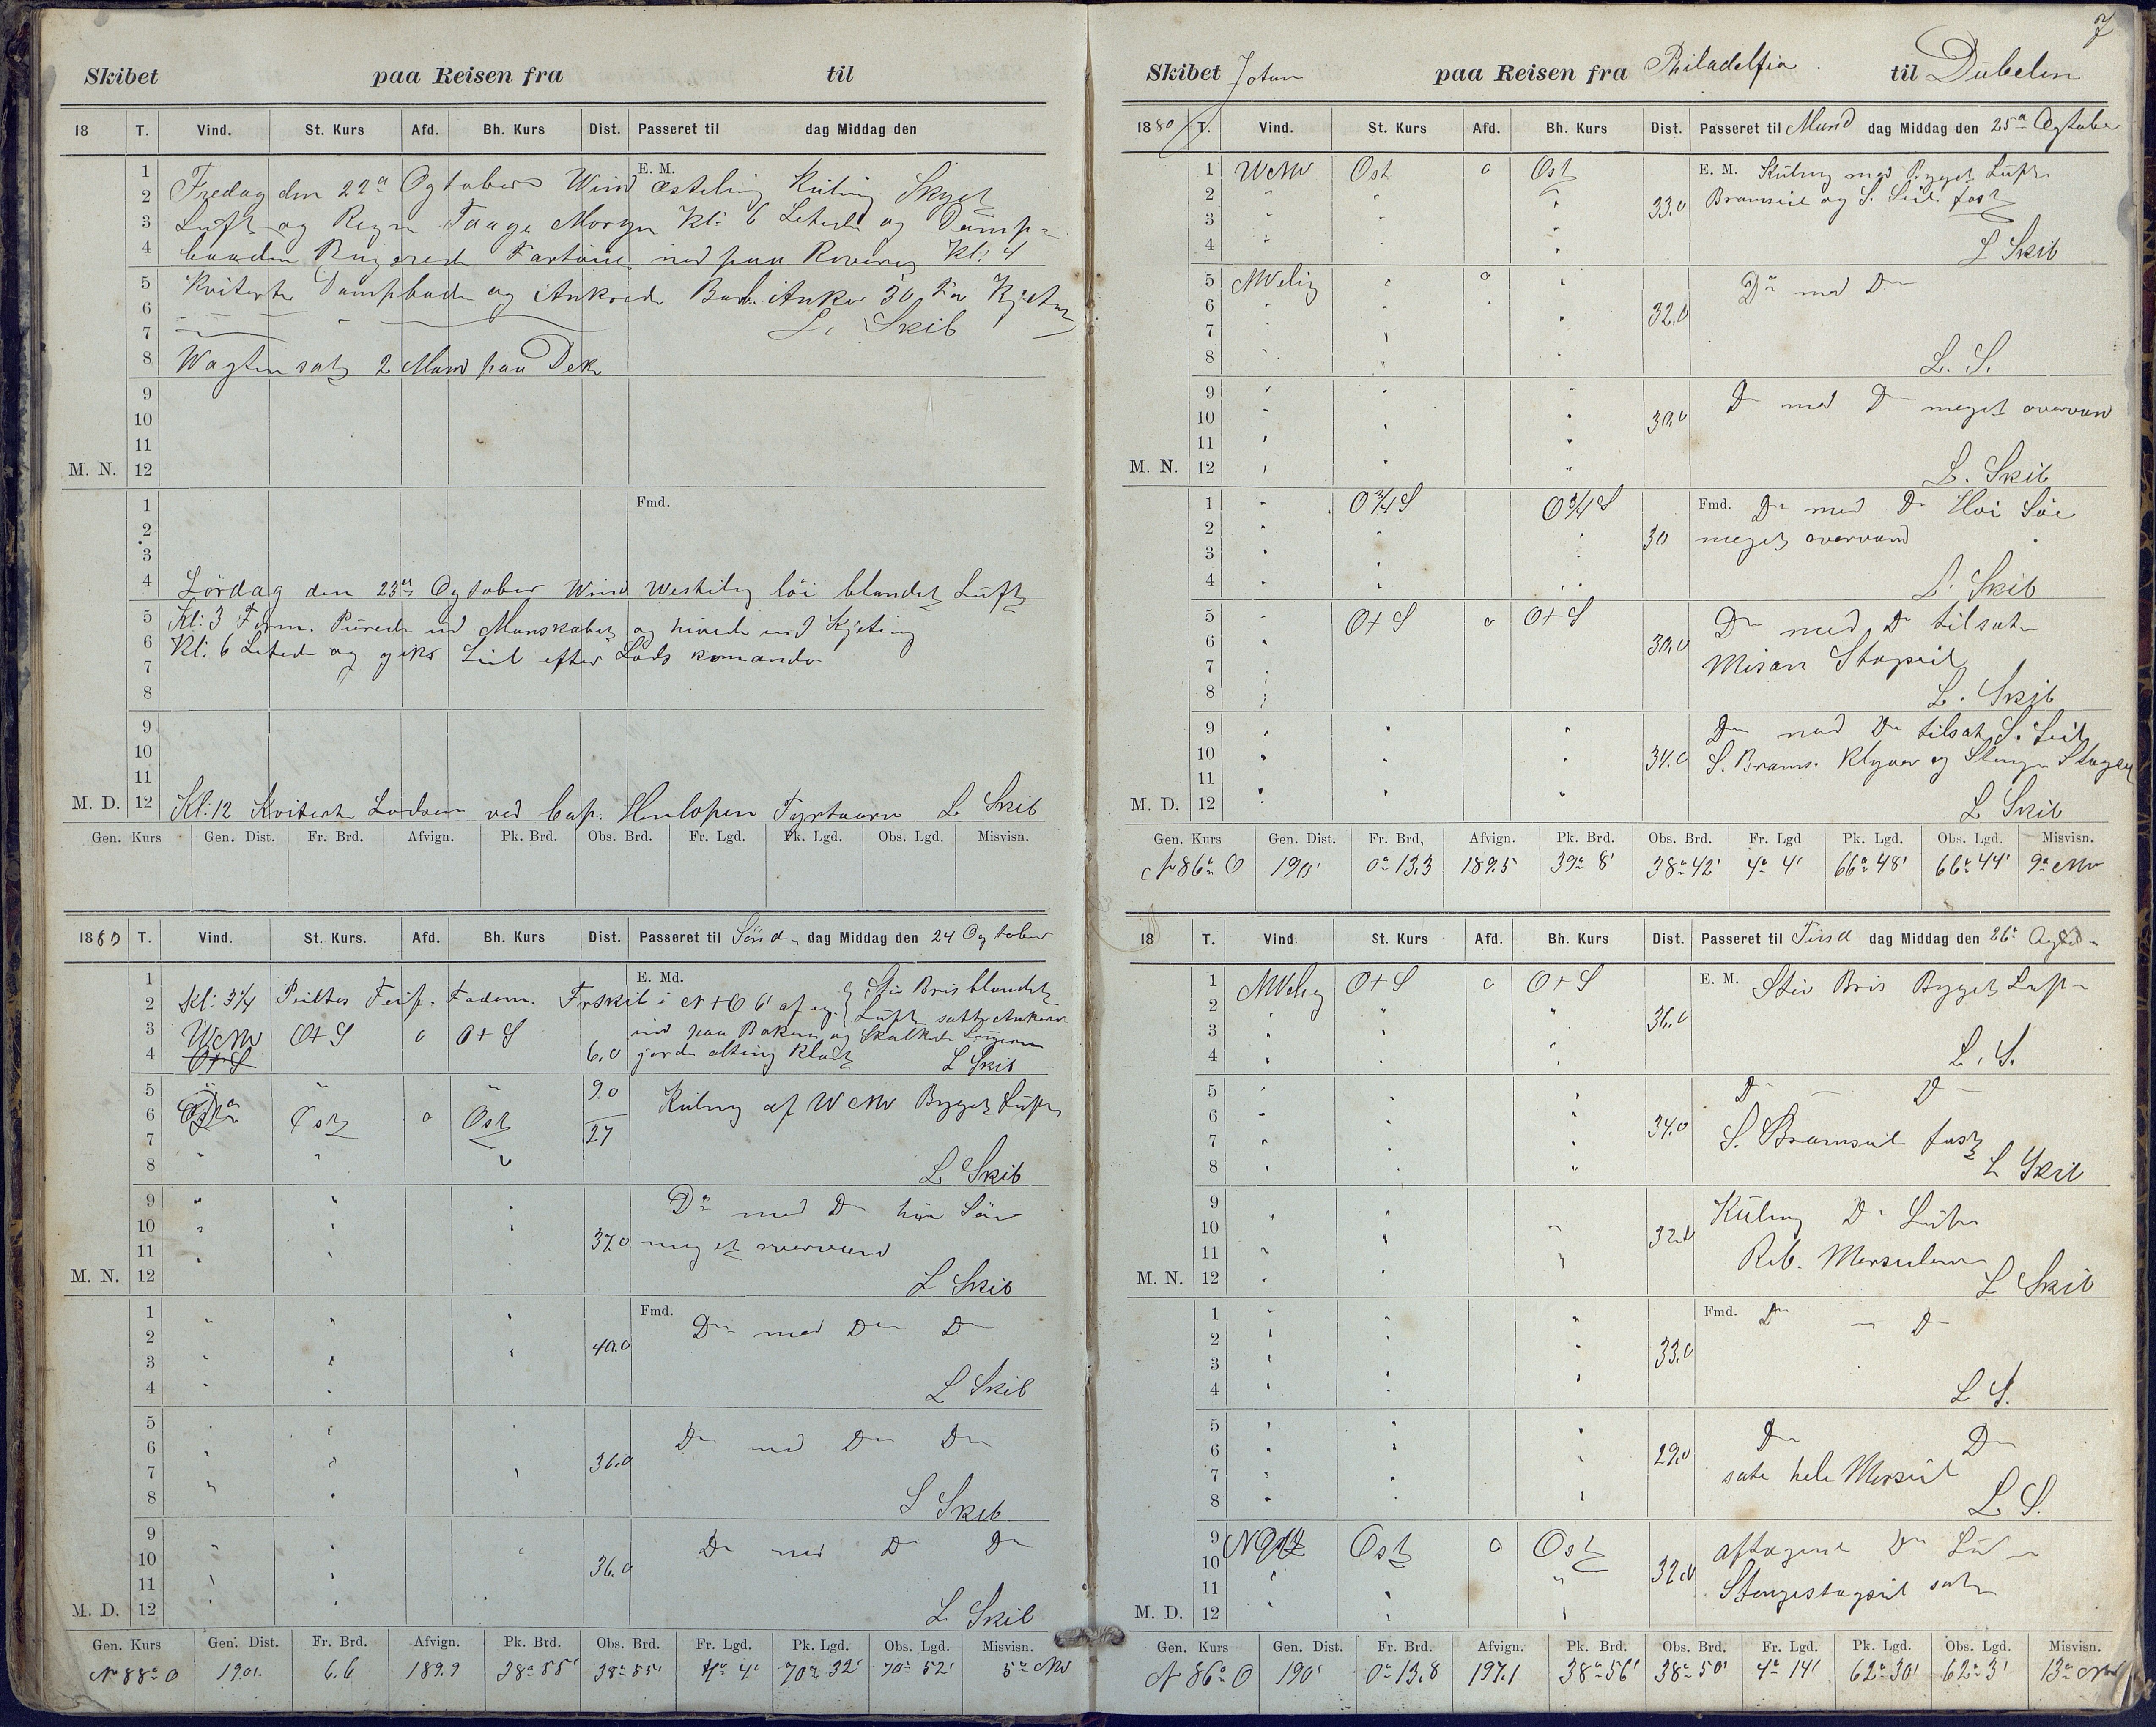 Skibet paa Reisen fra til
18 T. Vind. St. Kurs Afd. Bh. Kurs Dist. Passeret til dag Middag den
E. M.
1
2 Fredag den 22 Ogtober Wind Østelig Kuling Skyet
3 Luft og Regn Taage Morgen Kl: 6 Letede og Damp-
4 baaden ned paa Kl: 4
5 Kviterte Dampbaden og Ankrede Bard. Anker 30 Fv Kjetting
6
7 L. Skib
8 Wagten sat 2 Mand paa Dek
9
10
11
M. N. 12
1 Fmd.
2
3
4 Lördag den 23 Ogtober Wind Westelig löi blandet Luft
5 Kl: 3 Form. Purede ud Manskabet og hivede ind Kjeting
6 Kl: 6 Letede og gik Seil efter Lods komando
7
8
9
10
11
M. D. 12 Kl: 12 Kviterte Lodsen ved Cap. Henlopen Fyrtaarn L Skib
Gen. Kurs Gen. Dist. Fr. Brd. Afvign. Pk. Brd. Obs. Brd. Fr. Lgd. Pk. Lgd. Obs. Lgd. Misvisn.
1880 T. Vind. St. Kurs. Afd. Bh. Kurs Dist. Passeret til Sönd dag Middag den 24 Ogtober
1 E. Md. Stiv Bris blandet
2 Kl: 3 1/4 Peiltes Feif. Fadem. Frskib i N+O 6' af os. Luft satte Ankere
3 WNW O+S 0 O+S ind paa Bakken og Skalkede Lugerne
4 O+S 6.0 jorde alting Klart L Skib
5 9.0
6 Ost 0 Ost Kuling af WNW Bygget Luft
7 27
8 L Skib
9 Do med Do höi Söe
10
11 37.0 meget overvand
M. N. 12 L Skib
1 Fmd. Do med Do Do
2 40.0
3
4 L Skib
5
6 Do med Do Do
7 36.0
8 L Skib
9
10 Do med Do Do
11 36.0
M. D. 12 L Skib
Gen. Kurs Gen. Dist. Fr. Brd. Afvign. Pk. Brd. Obs. Brd. Fr. Lgd. Pk. Lgd. Obs. Lgd. Misvisn.
N 88° O 190'. 6.6 189.9 38° 55' 38° 55' 4° 4' 70° 32' 70° 52' 5° NW
7
Skibet Jotun paa Reisen fra Philadelfia til Dubelin
1880 T. Vind. St. Kurs Afd. Bh. Kurs Dist. Passeret til Mand dag Middag den 25 Ogtober
1 WNW Ost 0 Ost E. M. Kuling med Bygget Luft
2 33.0 Bramseil og S. Seil fast
3
4 L Skib
5 NWelig 0 Do med Do
6 32.0
7
8 L. S.
9 Do med Do meget overvand
10 30.0
11
M. N. 12 L. Skib
1 O 3/4 S O 3/4 S Fmd. Do med Do Höi Söe
2 30 meget overvand
3
4 L. Skib
5 O+S 0 O+S Do med Do tilsat
6 30.0
7 Misan Stagseil
8 L. Skib
9 Do med Do tilsat S. Seil
10 34.0 S. Brams. Klyver og Stenge Stagseil
11
M. D. 12 L Skib
Gen. Kurs Gen. Dist. Fr. Brd, Afvign. Pk. Brd. Obs. Brd. Fr. Lgd Pk. Lgd. Obs. Lgd. Misvisn.
N 86° O 190' 0° 13.3 189.5 39° 8' 38° 42' 4° 4' 66° 48' 66° 44' 9° NW
18 T. Vind. St. Kurs Afd. Bh. Kurs Dist. Passeret til Tirsd dag Middag den 26 Ogtob
1 NWelig O+S 0 O+S E. M. Stiv Bris Bygget Luft
2 36.0
3
4 L. S.
5 Do Do
6 34.0
7 S. Bramseil fast
8 L Skib
9 Kuling Do Luft
10 32.0
11 Reb. Merseilene
M. N. 12 L Skib
1 Fmd. Do Do
2
3 33.0
4 L S.
5 Do Do
6 29.0
7 sate hele Merseil
8 L S.
9 Ost 0 Ost aftagende Do
10 32.0
11 Stengestagseil sat
M. D. 12
Gen. Kurs Gen. Dist. Fr. Brd. Afvign. Pk. Brd. Obs. Brd. Fr. Lgd. Pk. Lgd. Obs. Lgd. Misvisn.
N 86° O 190' 0° 13.8 197.1 38° 56' 38° 50' 4° 14' 62° 30' 62° 3' 13° NW